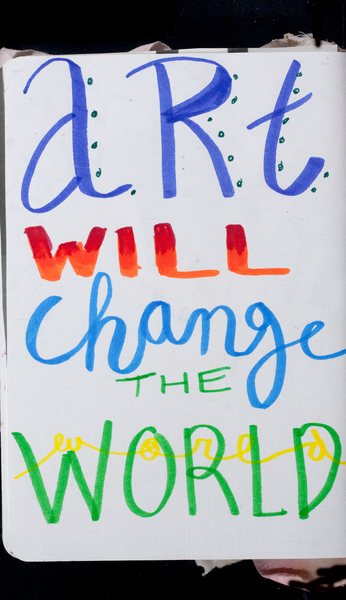 aRt
WILL
change
THE
WORLD
world